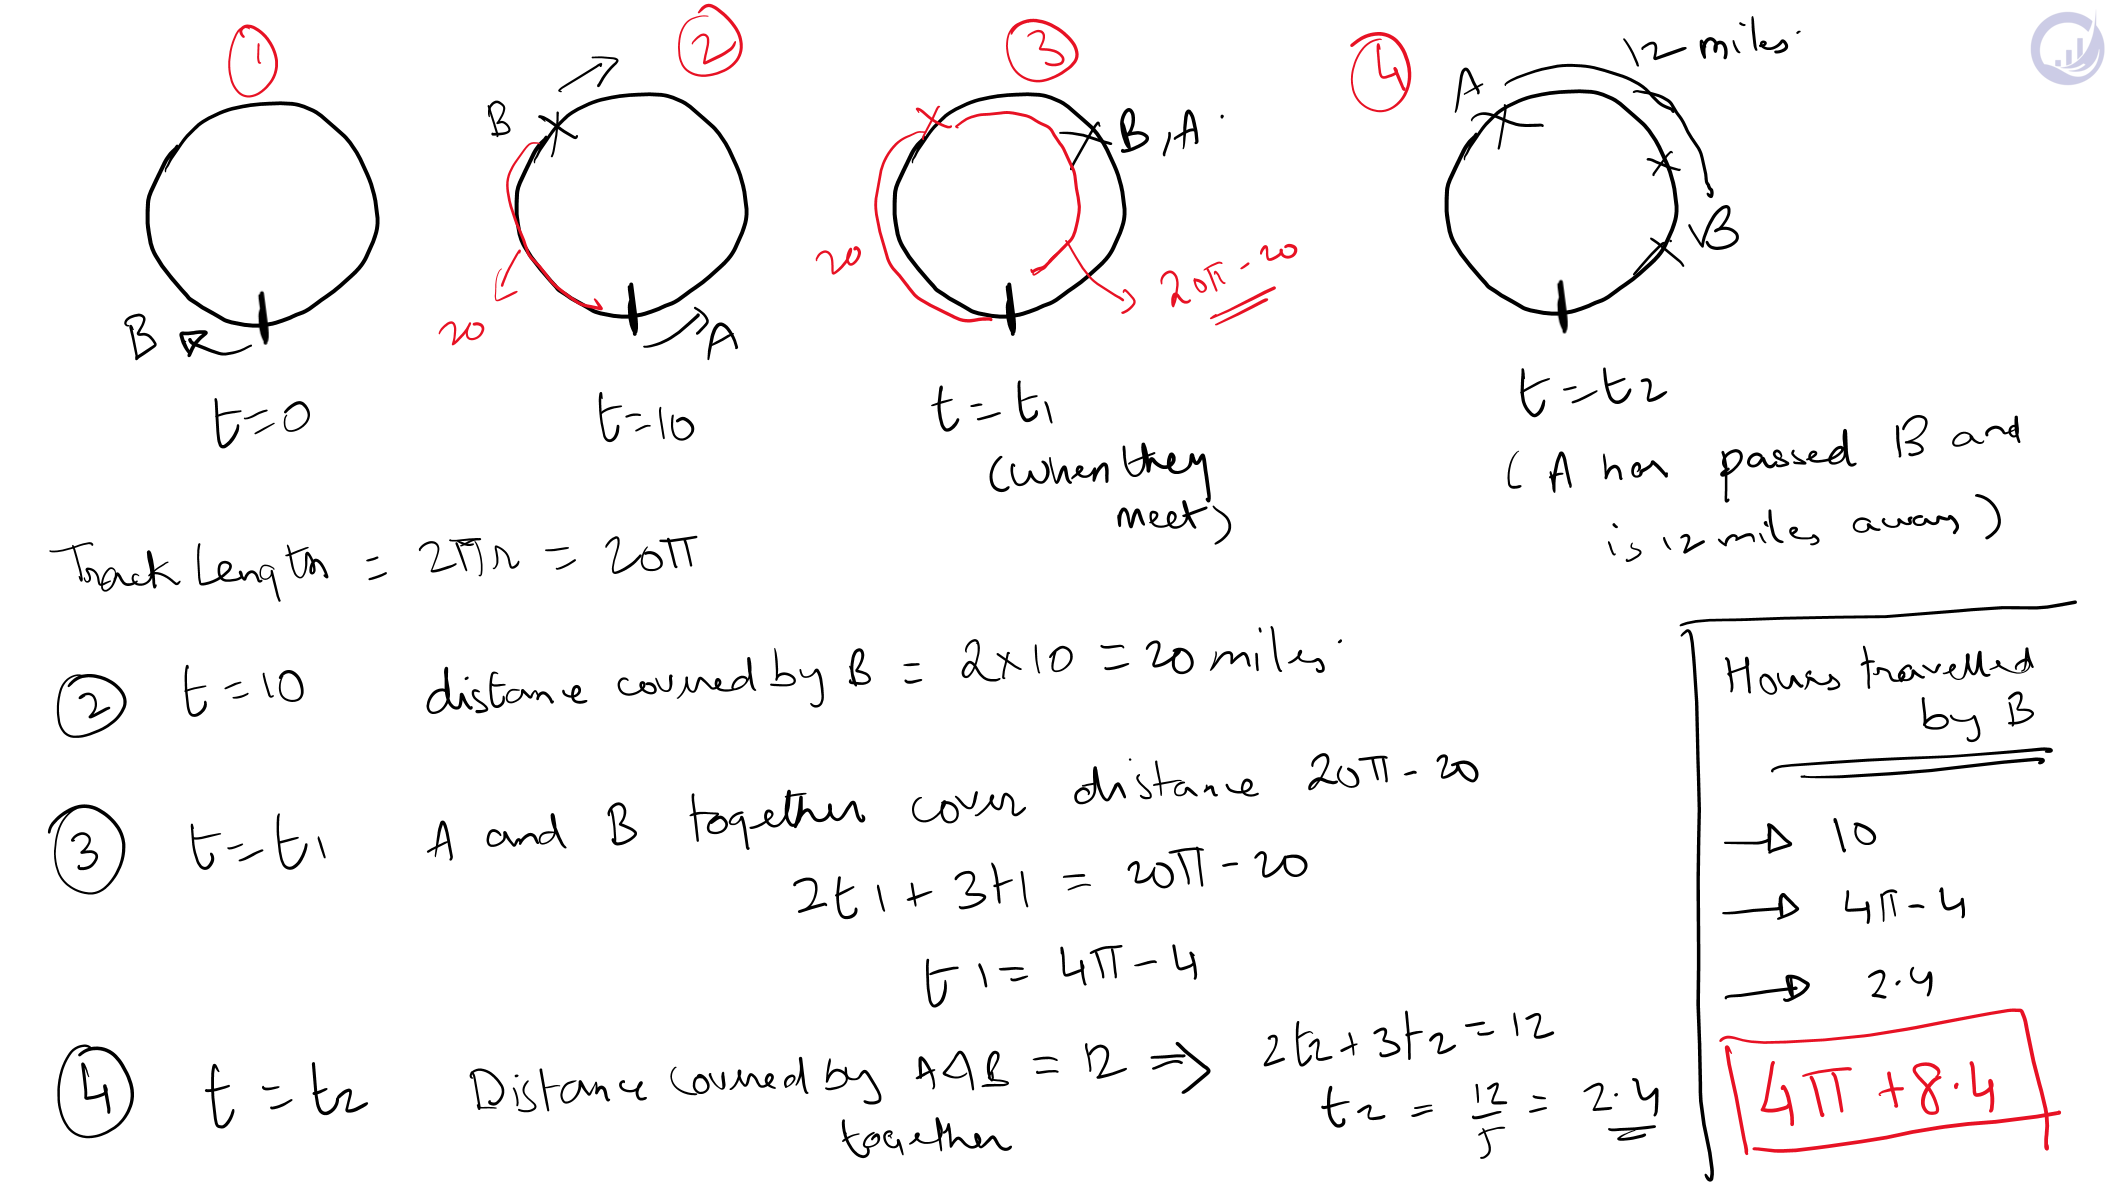 1
2
3
4
B
t=0
B
20
A
t=10
20
B, A.
20π-20
t=t1
(when they
meet)
12 miles.
A
B
t=t2
(A has passed B and
is 12 miles away)
Track Length = 2πr = 20π
2 t=10 distance covered by B = 2×10 = 20 miles.
3 t=t1 A and B together cover distance 20π-20
2t1+3t1 = 20π-20
t1= 4π-4
4 t=t2 Distance covered by A&B = 12 ⇒ 2t2+3t2=12
together
t2 = 12/5 = 2.4
Hours travelled
by B
→ 10
→ 4π-4
→ 2.4
4π+8.4